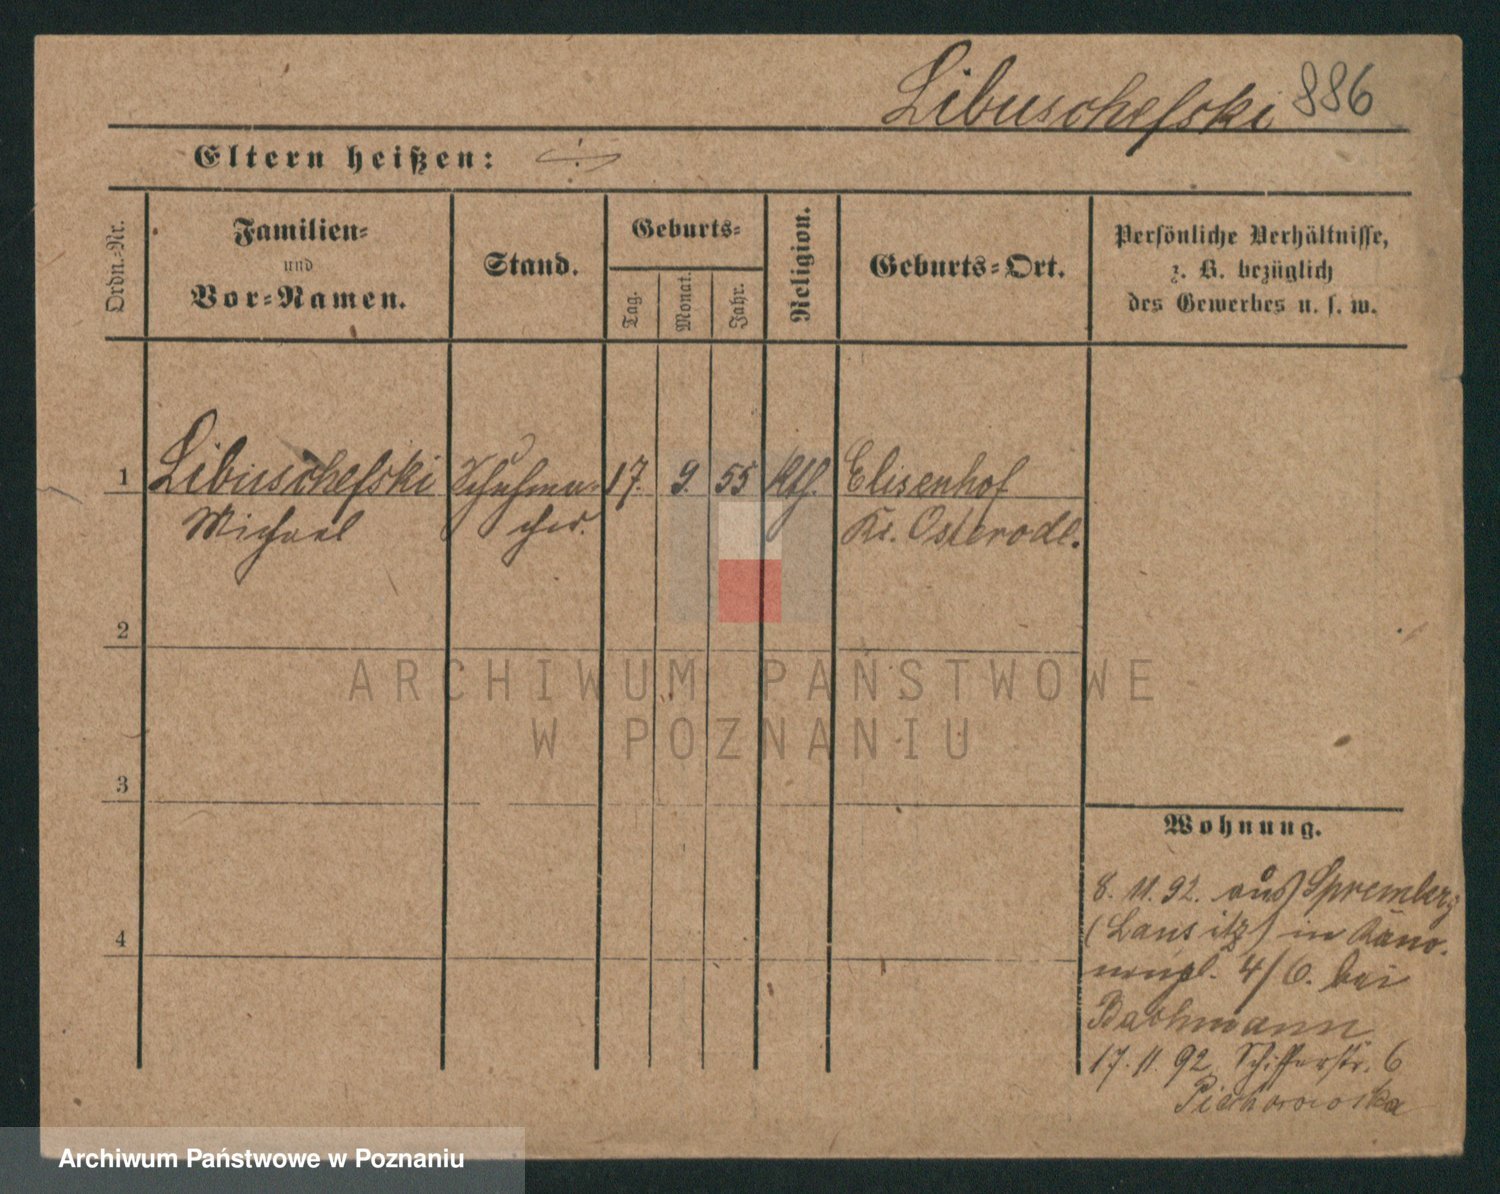 Libuschefski 886
Eltern heißen:
Ordn.-Nr.
Familien-
und
Vor-Namen.
Stand.
Geburts-
Tag.
Monat.
Jahr.
Religion.
Geburts-Ort.
Persönliche Verhältnisse,
z. B. bezüglich
des Gewerbes u. s. w.
1 Libuschefski Schuhma- 17. 9. 55 kth. Elisenhof
Michael cher. Kr. Osterode.
2
3
4
Wohnung.
8. 11. 92. aus Spremberg
(Lausitz) in
4/6. bei
Bachmann
17. 11. 92 Schifferstr. 6
ARCHIWUM PAŃSTWOWE
W POZNANIU
Archiwum Państwowe w Poznaniu